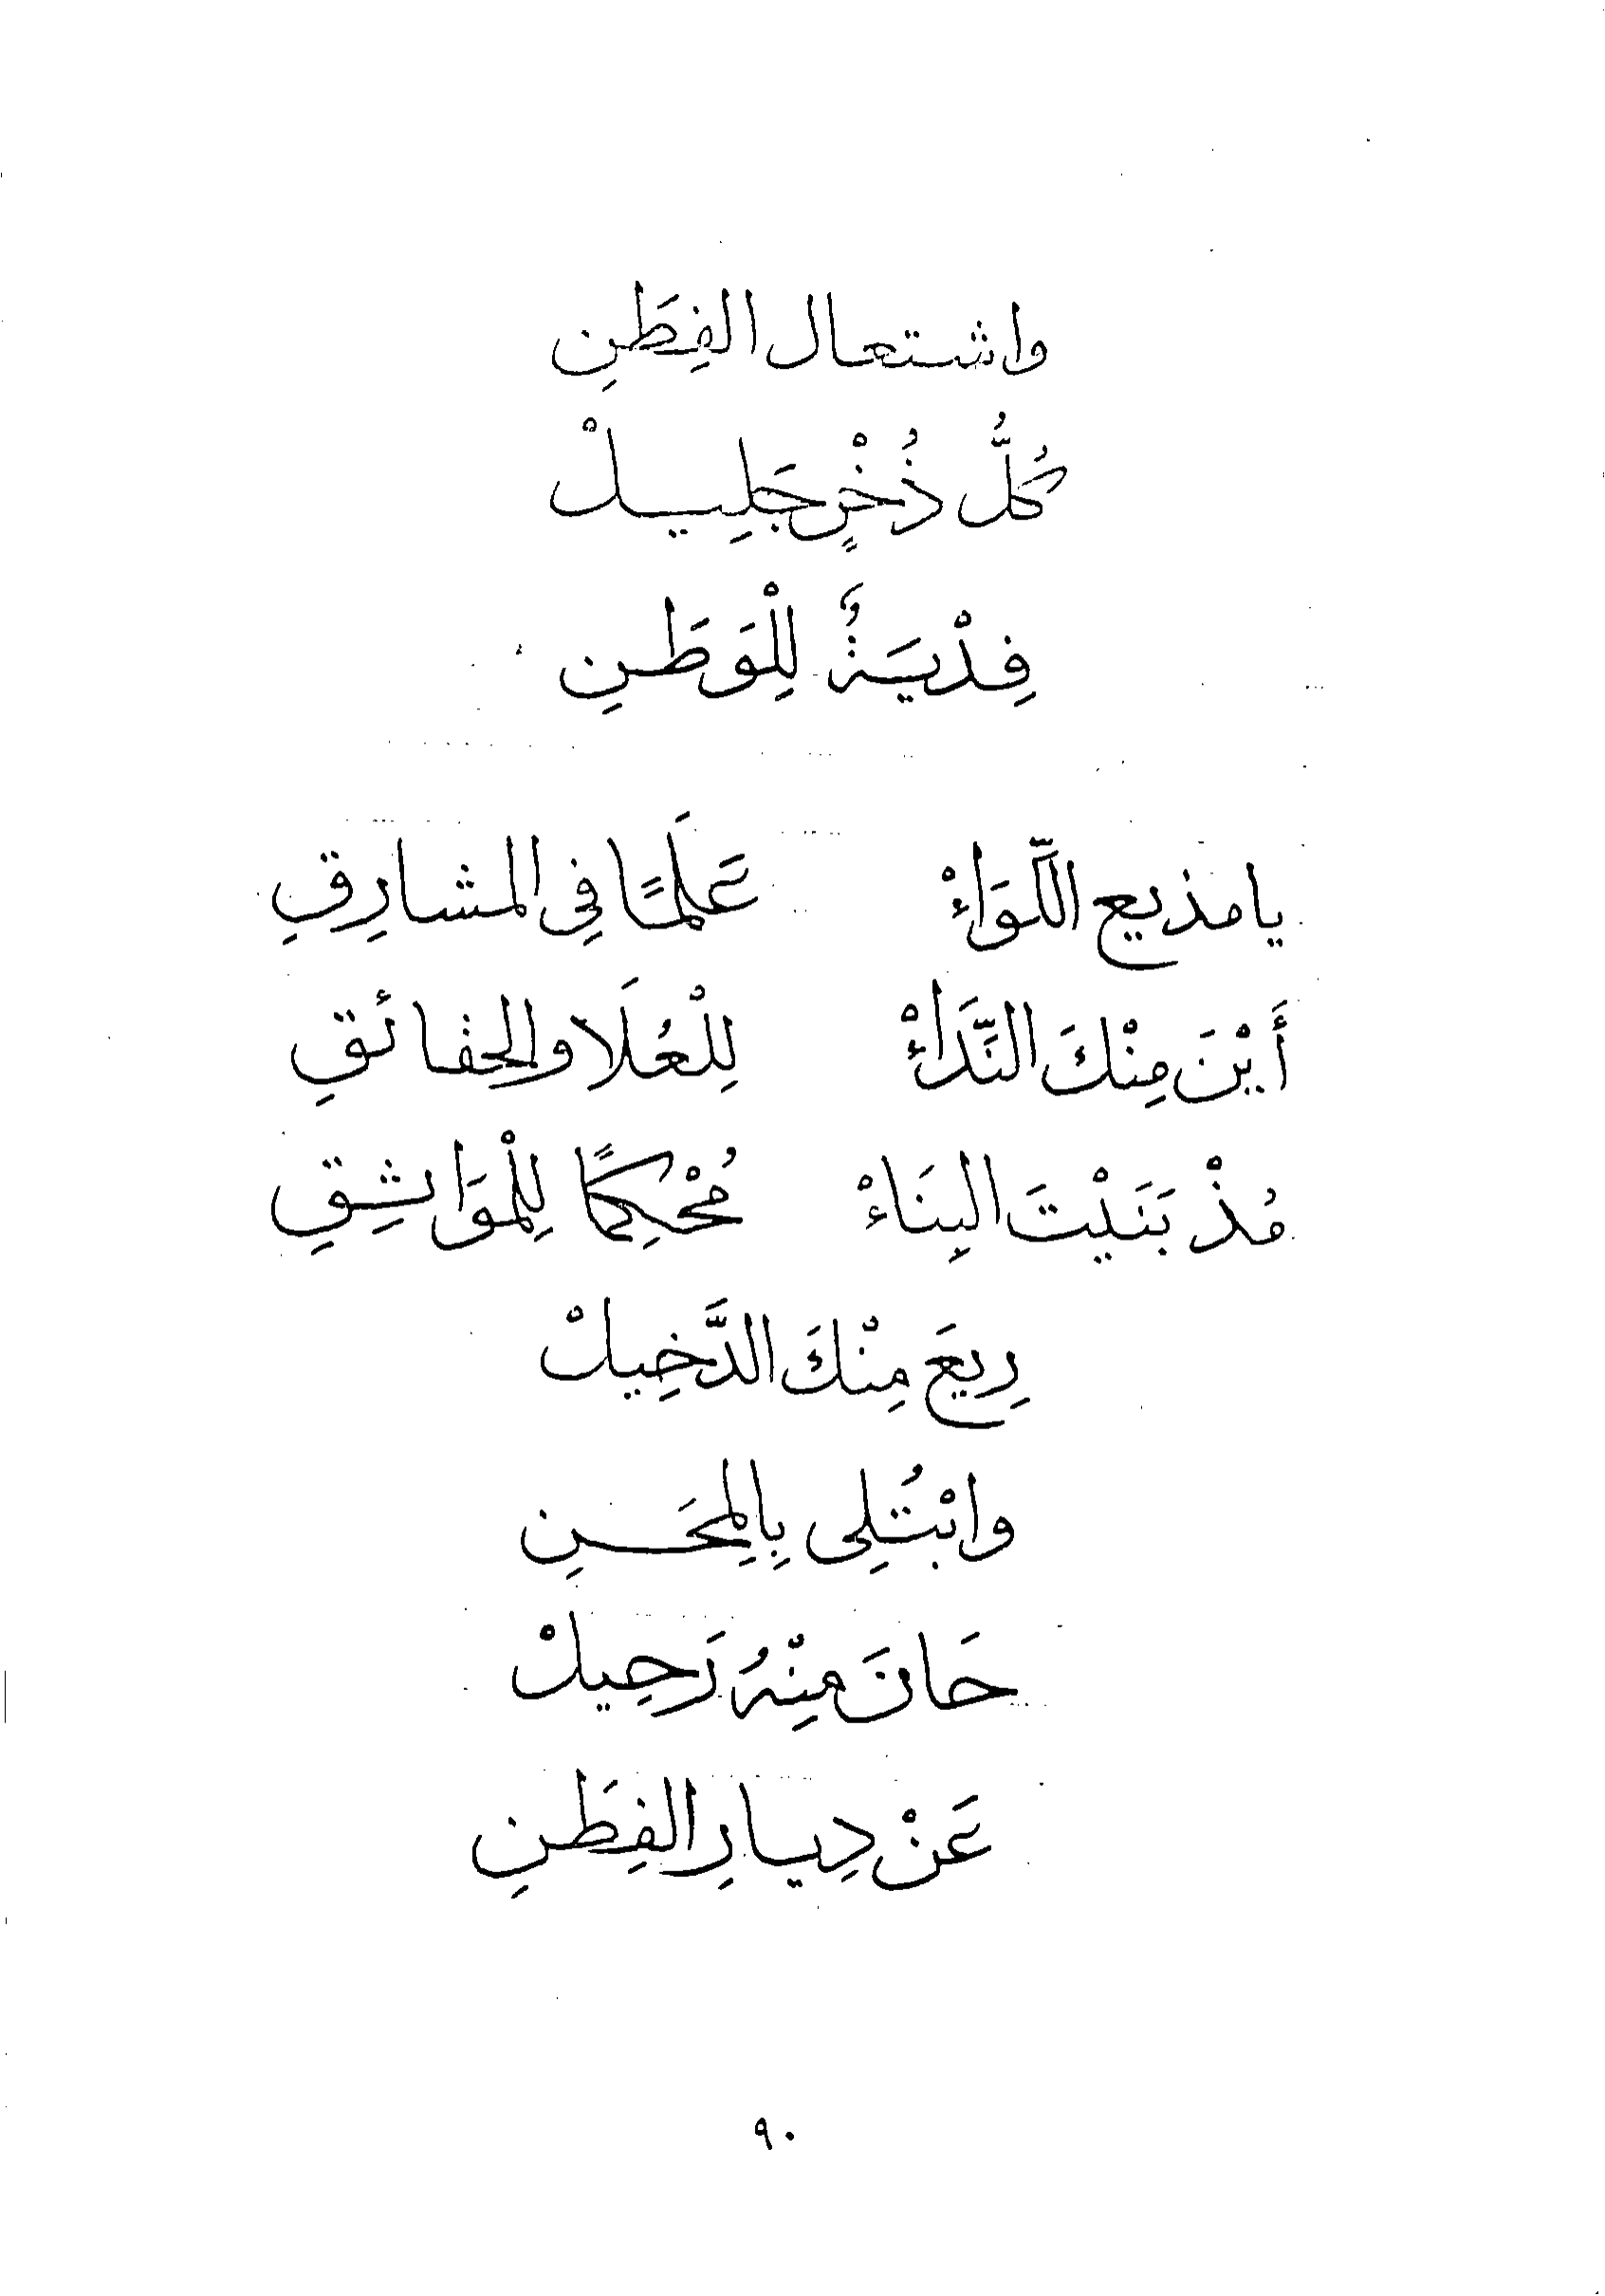 واشتعال الفِطَنِ
كُلُّ ذُخْرٍ جَلِيلْ
فِدْيَةٌ لِلْوَطَنِ
يا مذيع اللِّوَاءْ عَلَمًا فِي المشارِقِ
أَيْنَ مِنْكَ النِّدَاءْ لِلْعُلَا والحقائقِ
مُذْ بَنَيْتَ البِنَاءْ مُحْكِمًا لِلْمَوَاثِقِ
رِيعَ مِنْكَ الدَّخِيلْ
وابْتُلِى بِالمِحَنِ
حَانَ مِنْهُ رَحِيلْ
عَنْ دِيارِ الفِطَنِ
٩٠